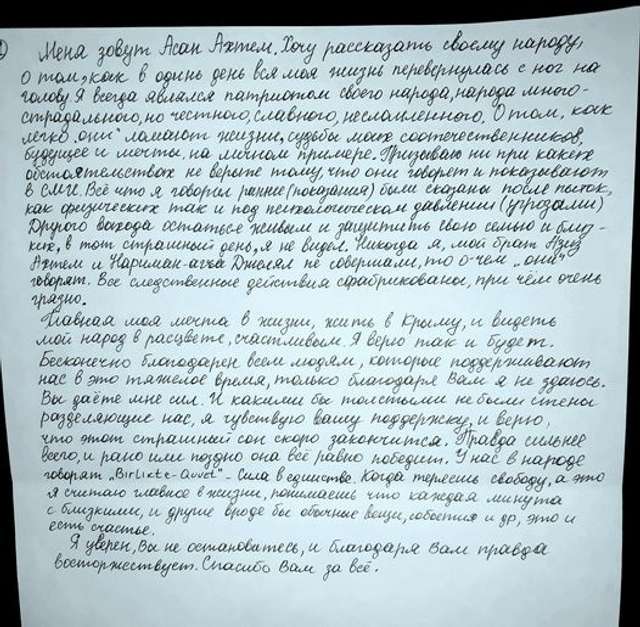 Меня зовут Асан Ахтем. Хочу рассказать своему народу,
о том, как в одинь день вся моя жизнь перевернулась с ног на
голову. Я всегда являлся патриотом своего народа, народа много-
страдального, но честного, славного, несломленного. О том, как
легко „они" ломают жизни, судьбы моих соотечественников,
будущее и мечты, на личном примере. Призываю ни при каких
обстоятельствах не верьте тому, что они говорят и показывают
в СМИ. Всё что я говорил раннее (показания) были сказаны после пыток,
как физических так и под психологическом давлении (угрозами)
Другого выхода остаться живым и защитить свою семью и близ-
ких, в тот страшный день, я не видел. Никогда я, мой брат Азиз
Ахтем и Нариман-агъа Джелял не совершали, то о чем „они"
говорят. Все следственные действия сфабрикованы, при чём очень
грязно.
Главная моя мечта в жизни, жить в Крыму, и видеть
мой народ в расцвете, счастливым. Я верю так и будет.
Бесконечно благодарен всем людям, которые поддерживают
нас в это тяжелое время, только благодаря Вам я не здаюсь.
Вы даёте мне сил. И какими бы толстыми не были стены
разделяющие нас, я чувствую вашу поддержку, и верю,
что этот страшный сон скоро закончится. Правда сильнее
всего, и рано или поздно она всё равно победит. У нас в народе
говорят „Birlikte-Quvet" - Сила в единстве. Когда теряешь свободу, а это
я считаю главное в жизни, понимаешь что каждая минута
с близкими, и другие вроде бы обычные вещи, события и др, это и
есть счастье.
Я уверен, Вы не остановитесь, и благодаря Вам правда
восторжествует. Спасибо Вам за всё.